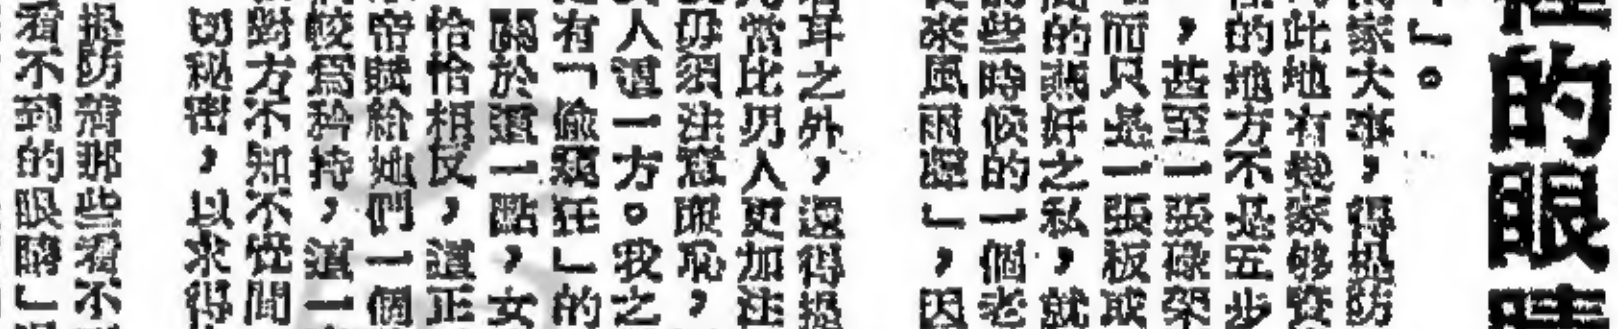 的眼睛
」。
家大事，得提防
此地有幾家够資
的地方不是五步
，甚至一張碌架
而只是一張板或
的癖好之私，就
些時候的一個老
來風雨還」，因
耳之外，還得提
常比男人更加注
毋須注意跟宛，
人這一方。我之
有「偷窺狂」的
關於這一點，女
恰恰相反，這正
帝賦給她們一個
較爲矜持，這一
對方不知不覺間
切秘密，以求得
提防着那些看不
看不到的眼睛」